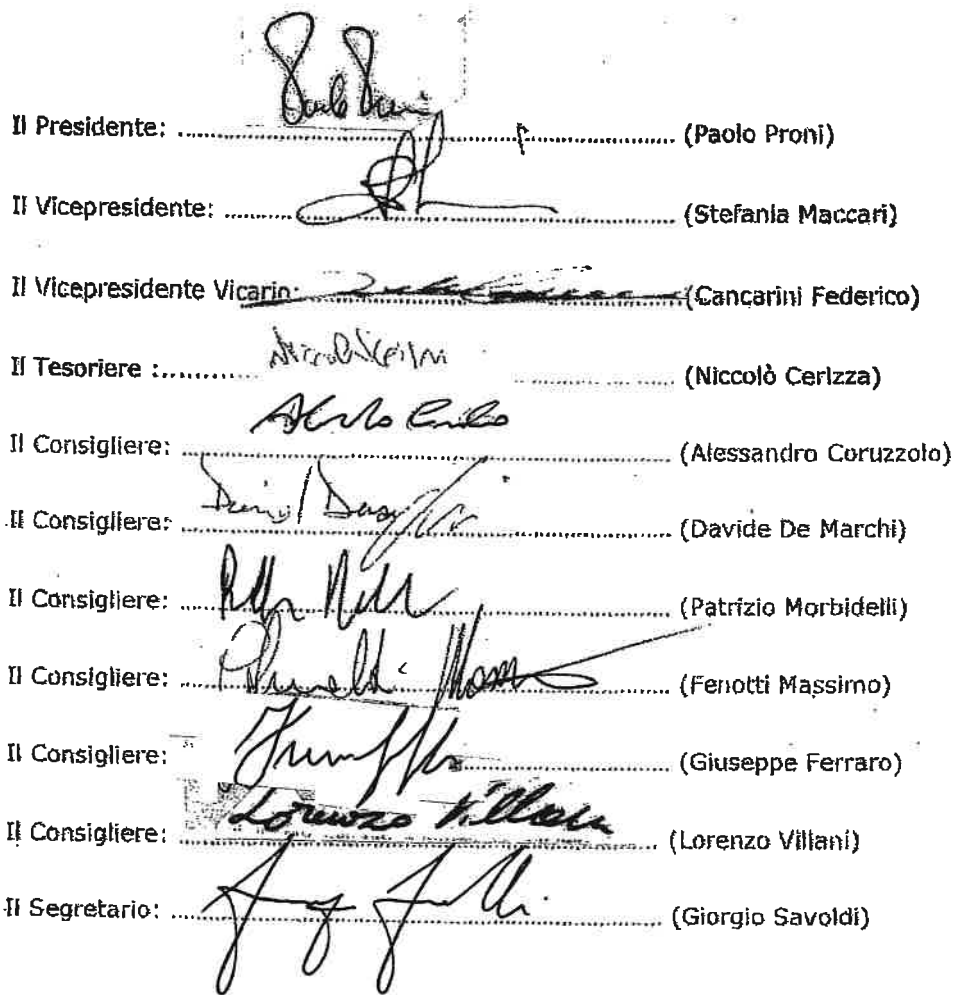 Il Presidente: (Paolo Proni)
Il Vicepresidente: (Stefania Maccari)
Il Vicepresidente Vicario: (Cancarini Federico)
Il Tesoriere : (Niccolò Cerizza)
Il Consigliere: (Alessandro Coruzzolo)
Il Consigliere: (Davide De Marchi)
Il Consigliere: (Patrizio Morbidelli)
Il Consigliere: (Fenotti Massimo)
Il Consigliere: (Giuseppe Ferraro)
Il Consigliere: Lorenzo Villani (Lorenzo Villani)
Il Segretario: (Giorgio Savoldi)